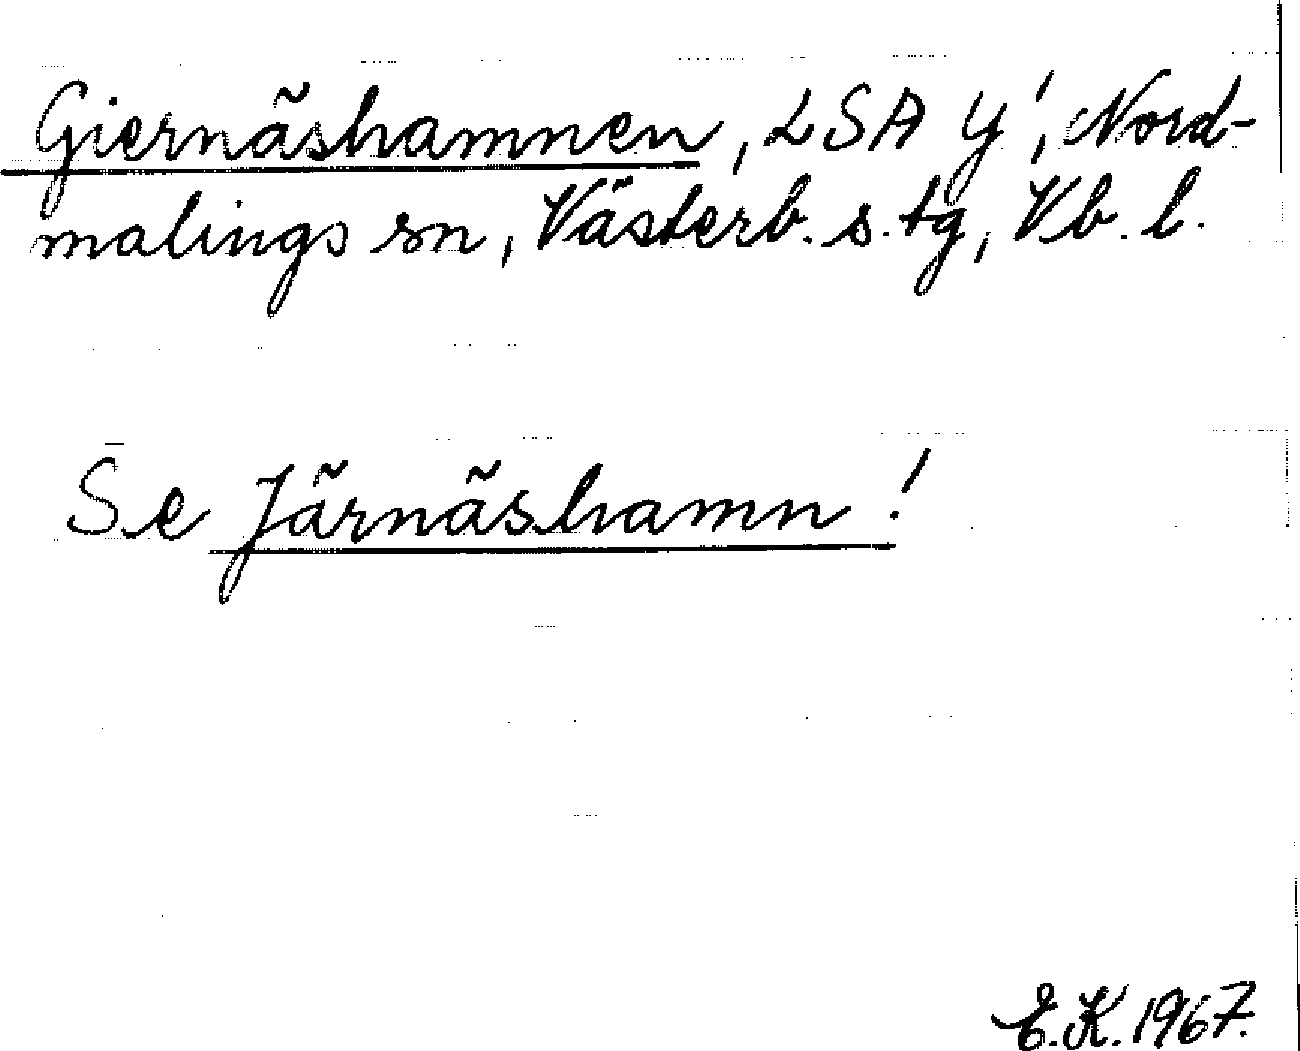 Giernäshamnen, LSA Y', Nord-
malings sn, Västerb. s. tg, Vb. l.
Se Järnäshamn!
E.K. 1967.